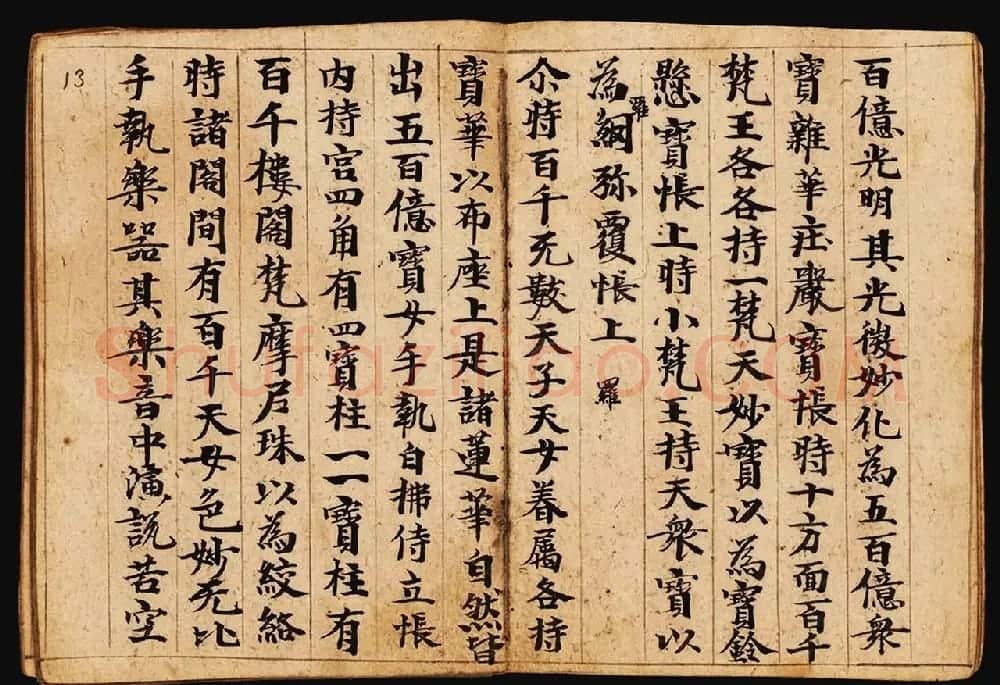 百億光明其光微妙化為五百億衆
寶雜華庄嚴寶帳時十方面百千
梵王各各持一梵天妙寶以為寶鈴
懸寶帳上時小梵王持天衆寶以
為羅網弥覆帳上 羅
尒時百千无數天子天女眷属各持
寶華以布座上是諸蓮華自然皆
出五百億寶女手執白拂侍立帳
内持宫四角有四寶柱一一寶柱有
百千樓閣梵摩尼珠以為絞絡
時諸閣間有百千天女色妙无比
手執樂器其樂音中演説苦空
13